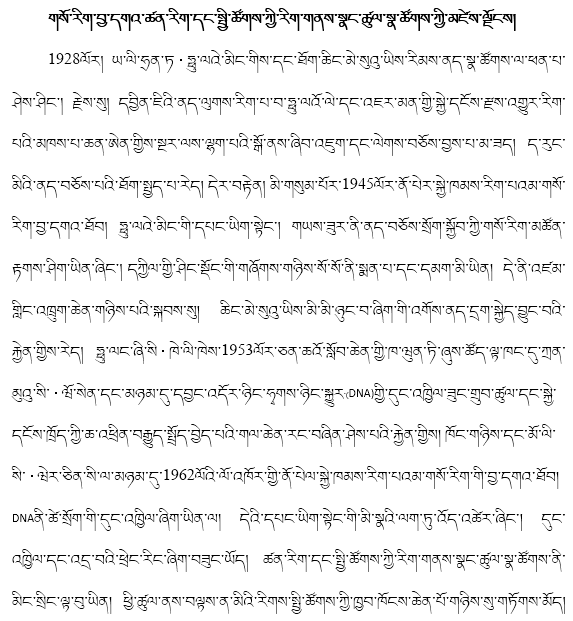 གསོ་རིག་བྱ་དགའ་ཚན་རིག་དང་སྤྱི་ཚོགས་ཀྱི་རིག་གནས་སྣང་ཚུལ་སྣ་ཚོགས་ཀྱི་མཛེས་ལྗོངས།
1928ལོར། ཡ་ལི་ཧྲན་ཏ・ཧྥུ་ལའེ་མིང་གིས་དང་ཐོག་ཆིང་མེ་སུའུ་ཡིས་རིམས་ནད་སྣ་ཚོགས་ལ་ཕན་པ་
ཤེས་ཤིང་། རྗེས་སུ། དབྱིན་ཇིའི་ནད་ལུགས་རིག་པ་བ་ཧྥུ་ལའོ་ལེ་དང་འཇར་མན་གྱི་སྐྱེ་དངོས་རྫས་འགྱུར་རིག་
པའི་མཁས་པ་ཆན་ཨེན་གྱིས་སྔར་ལས་ལྷག་པའི་སྒོ་ནས་ཞིབ་འཇུག་དང་ལེགས་བཅོས་བྱས་པ་མ་ཟད། ད་དུང་
མིའི་ནད་བཅོས་པའི་ཐོག་སྤྱད་པ་རེད། དེར་བརྟེན། མི་གསུམ་པོར་1945ལོར་ནོ་པེར་སྐྱེ་ཁམས་རིག་པའམ་གསོ་
རིག་བྱ་དགའ་ཐོབ། ཧྥུ་ལའེ་མིང་གི་དཔང་ཡིག་སྟེང་། གཡས་ཟུར་ནི་ནད་བཅོས་སྲོག་སྐྱོབ་ཀྱི་གསོ་རིག་མཚོན་
རྟགས་ཤིག་ཡིན་ཞིང་། དཀྱིལ་གྱི་ཤིང་སྡོང་གི་གཞོགས་གཉིས་སོ་སོ་ནི་སྨན་པ་དང་དམག་མི་ཡིན། དེ་ནི་འཛམ་
གླིང་འཁྲུག་ཆེན་གཉིས་པའི་སྐབས་སུ། ཆིང་མེ་སུའུ་ཡིས་མི་མི་ཉུང་བ་ཞིག་གི་འགོས་ནད་དྲག་སྐྱེད་བྱུང་བའི་
རྐྱེན་གྱིས་རེད། ཧྥུ་ལང་ཞི་སི・ཁེ་ལི་ཁེས་1953ལོར་ཅན་ཆའོ་སློབ་ཆེན་གྱི་ཁ་ཝུན་ཏི་ཞུས་ཚོད་ལྟ་ཁང་དུ་ཀྲན་
མུའུ་སི་・ཝོ་སེན་དང་མཉམ་དུ་དབྱང་འདོར་ཉིང་ཧྲུགས་ཉིང་སྐྱུར(DNA)གྱི་དུང་འཁྱིལ་ཟུང་གྲུབ་ཚུལ་དང་སྐྱེ་
དངོས་ཁྲོད་ཀྱི་ཆ་འཕྲིན་བརྒྱུད་སྤྲོད་བྱེད་པའི་གལ་ཆེན་རང་བཞིན་ཤེས་པའི་རྐྱེན་གྱིས། ཁོང་གཉིས་དང་མོ་ལི་
སི་・ཝེར་ཅིན་སི་ལ་མཉམ་དུ་1962ལོའི་ལོ་འཁོར་གྱི་ནོ་པེལ་སྐྱེ་ཁམས་རིག་པའམ་གསོ་རིག་གི་བྱ་དགའ་ཐོབ།
DNAནི་ཚེ་སྲོག་གི་དུང་འཁྱིལ་ཞིག་ཡིན་ལ། དེའི་དཔང་ཡིག་སྟེང་གི་མི་སྣའི་ལག་ཏུ་འོད་འཚེར་ཞིང་། དུང་
འཁྱིལ་དང་འདྲ་བའི་ཕྲེང་རིང་ཞིག་བཟུང་ཡོད། ཚན་རིག་དང་སྤྱི་ཚོགས་ཀྱི་རིག་གནས་སྣང་ཚུལ་སྣ་ཚོགས་ནི་
མིང་སྲིང་ལྟ་བུ་ཡིན། ཕྱི་ཚུལ་ནས་བལྟས་ན་མིའི་རིགས་སྤྱི་ཚོགས་ཀྱི་ཁྱབ་ཁོངས་ཆེན་པོ་གཉིས་སུ་གཏོགས་མོད།